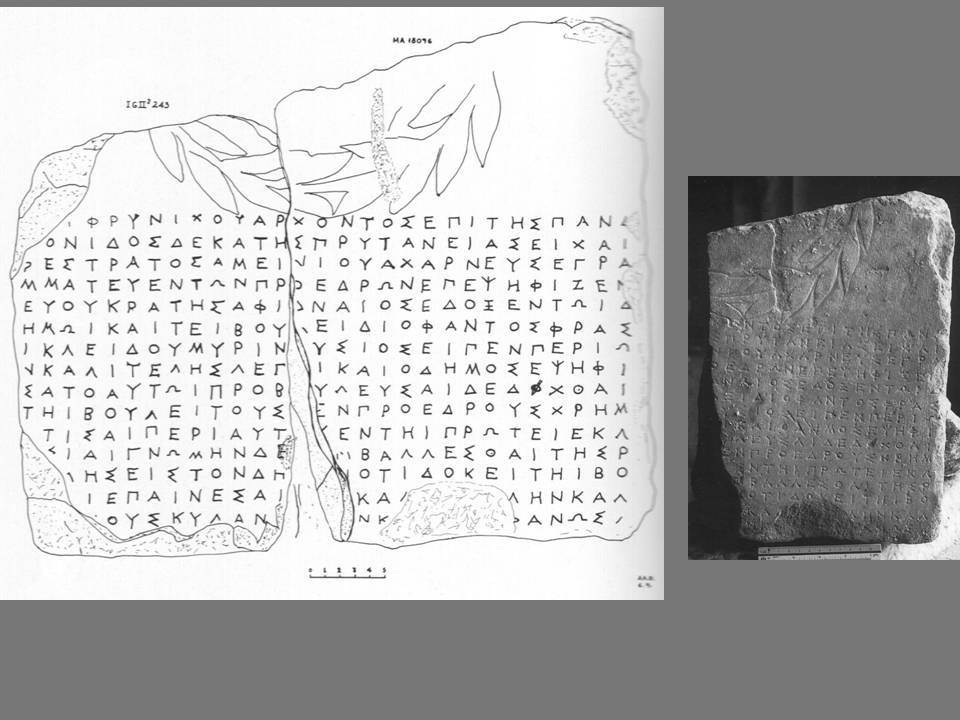 IG II² 243
MA 18096
ΦΡΥΝΙΧΟΥΑΡΧΟΝΤΟΣΕΠΙΤΗΣΠΑΝΔ
ΟΝΙΔΟΣΔΕΚΑΤΗΣΠΡΥΤΑΝΕΙΑΣΕΙΧΑΙ
ΡΕΣΤΡΑΤΟΣΑΜΕΙΝΙΟΥΑΧΑΡΝΕΥΣΕΓΡΑ
ΜΜΑΤΕΥΕΝΤΩΝΠΡΟΕΔΡΩΝΕΠΕΨΗΦΙΖΕΝ
ΕΥΟΥΚΡΑΤΗΣΑΦΙΔΝΑΙΟΣΕΔΟΞΕΝΤΩΙΔ
ΗΜΩΙΚΑΙΤΕΙΒΟΥ ΕΙΔΙΟΦΑΝΤΟΣΦΡΑΣ
ΙΚΛΕΙΔΟΥΜΥΡΙΝ ΥΣΙΟΣΕΙΠΕΝΠΕΡΙΩ
ΝΚΑΛΙΤΕΛΗΣΛΕΓ ΙΚΑΙΟΔΗΜΟΣΕΨΗΦΙ
ΣΑΤΟΑΥΤΩΙΠΡΟΒ ΥΛΕΥΣΑΙΔΕΔΟΧΘΑΙ
ΤΗΙΒΟΥΛΕΙΤΟΥΣ ΕΝΠΡΟΕΔΡΟΥΣΧΡΗΜ
ΤΙΣΑΙΠΕΡΙΑΥΤ ΕΝΤΗΙΠΡΩΤΕΙΕΚΛ
ΣΙΑΙΓΝΩΜΗΝΔΕ ΒΑΛΛΕΣΘΑΙΤΗΣΒ
ΛΗΣΕΙΣΤΟΝΔΗ ΟΤΙΔΟΚΕΙΤΗΙΒΟ
ΙΕΠΑΙΝΕΣΑΙ ΚΑΛ ΛΗΝΚΑΛ
ΟΥΣΚΥΛΑΝ ΝΚ ΑΝΩΣ
0 1 2 3 4 5